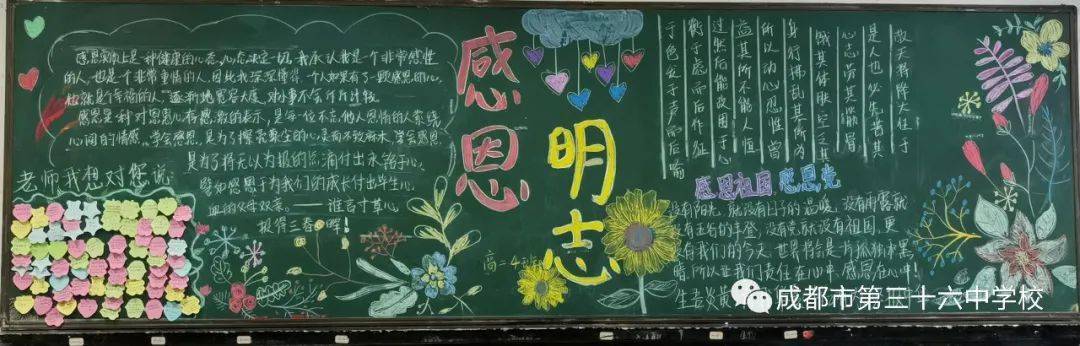 感恩实际上是一种健康的心态,心态决定一切,我承认我是一个非常感性
的人,也是个非常重情的人,因此我深深懂得,一个人如果有了一颗感恩的心,
他就是个幸福的人,
感恩是一种对恩惠心存感激的表示,是每一位不忘他人恩情的人萦绕
心间的情感。学会感恩,是为了擦亮蒙尘的心灵而不致麻木,学会感恩
是为了将无以为报的点滴付出永铭于心。
譬如感恩于为我们的成长付出毕生心
血的父母双亲。——谁言寸草心,
报得三春晖!
老师我想对您说:
感恩
明志
高二4班
故天将降大任于
是人也必先苦其
心志劳其筋骨
饿其体肤空乏其
身行拂乱其所为
所以动心忍性曾
益其所不能人恒
过然后能改困于心
衡于虑而后作征
于色发于声而后喻
感恩祖国 感恩党
没有阳光,就没有日子的温暖,没有雨露就
没有五谷的丰登,没有党,就没有祖国,更
没有我们的今天,世界将会是一片孤独和黑
暗,所以让我们责任在心中,感恩在心中!
成都市第三十六中学校